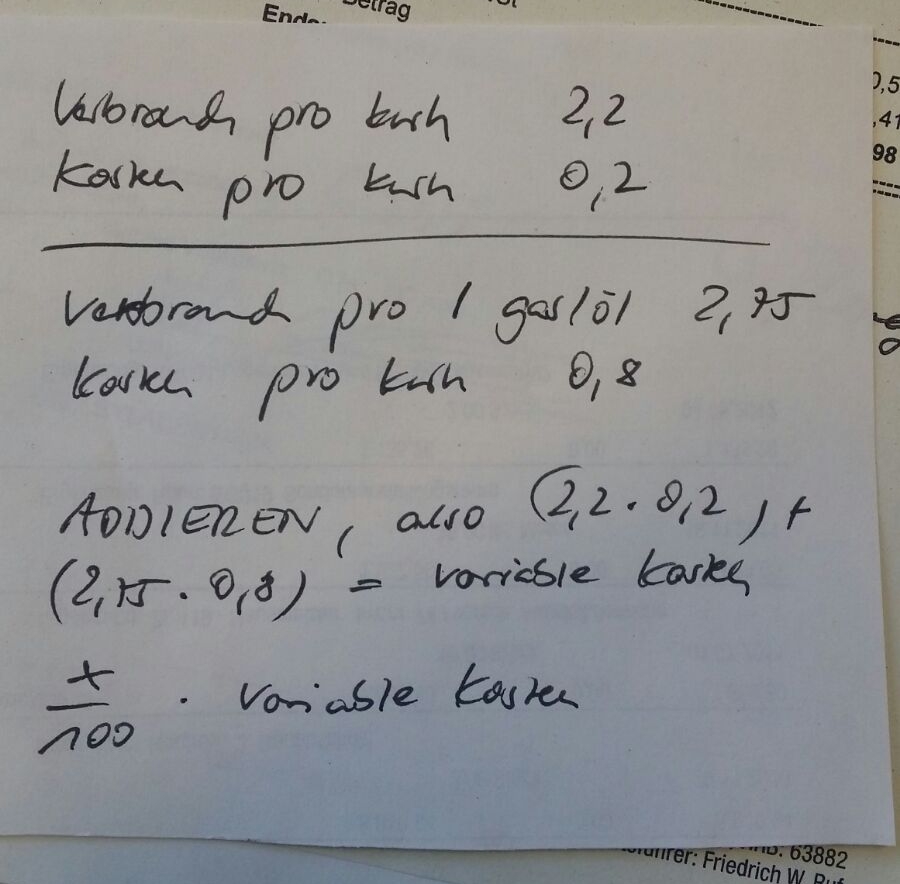 Betrag
Ende
Verbrauch pro kwh 2,2
Kosten pro kwh 0,2
0,5
,41
98
Verbrauch pro l gas/öl 2,75
Kosten pro kwh 0,8
ADDIEREN, also (2,2 · 0,2) +
(2,75 · 0,8) = variable Kosten
x
100 · variable Kosten
63882
führer: Friedrich W. Ruf